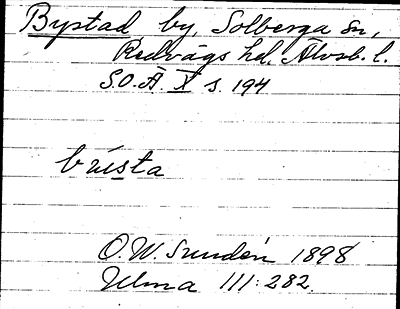 Bystad by, Solberga sn,
Redvägs hd. Älvsb. l.
S.O.Ä. X s. 194
O. W. Sundén 1898
Ulma 111:282.